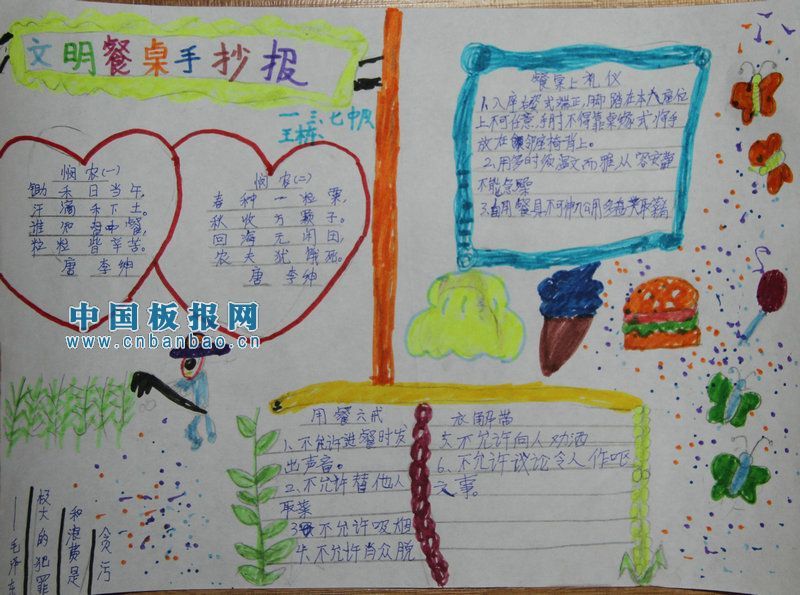 文明餐桌手抄报
一.三.七中队
王栋
悯农(一)
锄禾日当午,
汗滴禾下土。
谁知盘中餐,
粒粒皆辛苦。
唐 李绅
悯农(二)
春种一粒粟,
秋收万颗子。
四海无闲田,
农夫犹饿死。
唐 李绅
餐桌上礼仪
1.入座姿式端正,脚踏在本人座位
上不可任意
手时不得靠桌缘式将手
放在邻座椅背上。
2.用餐时须温文而雅从容安静
不能急躁
中国板报网
www.cnbanbao.cn
用餐六戒
1、不允许进餐时发
出声音。
2、不允许替他人
取菜
3、不允许吸烟
4、不允许当众脱
衣解带
5、不允许向人劝酒
6、不允许议论令人作呕
之事。
贪污
和浪费是
极大的犯罪
——毛泽东